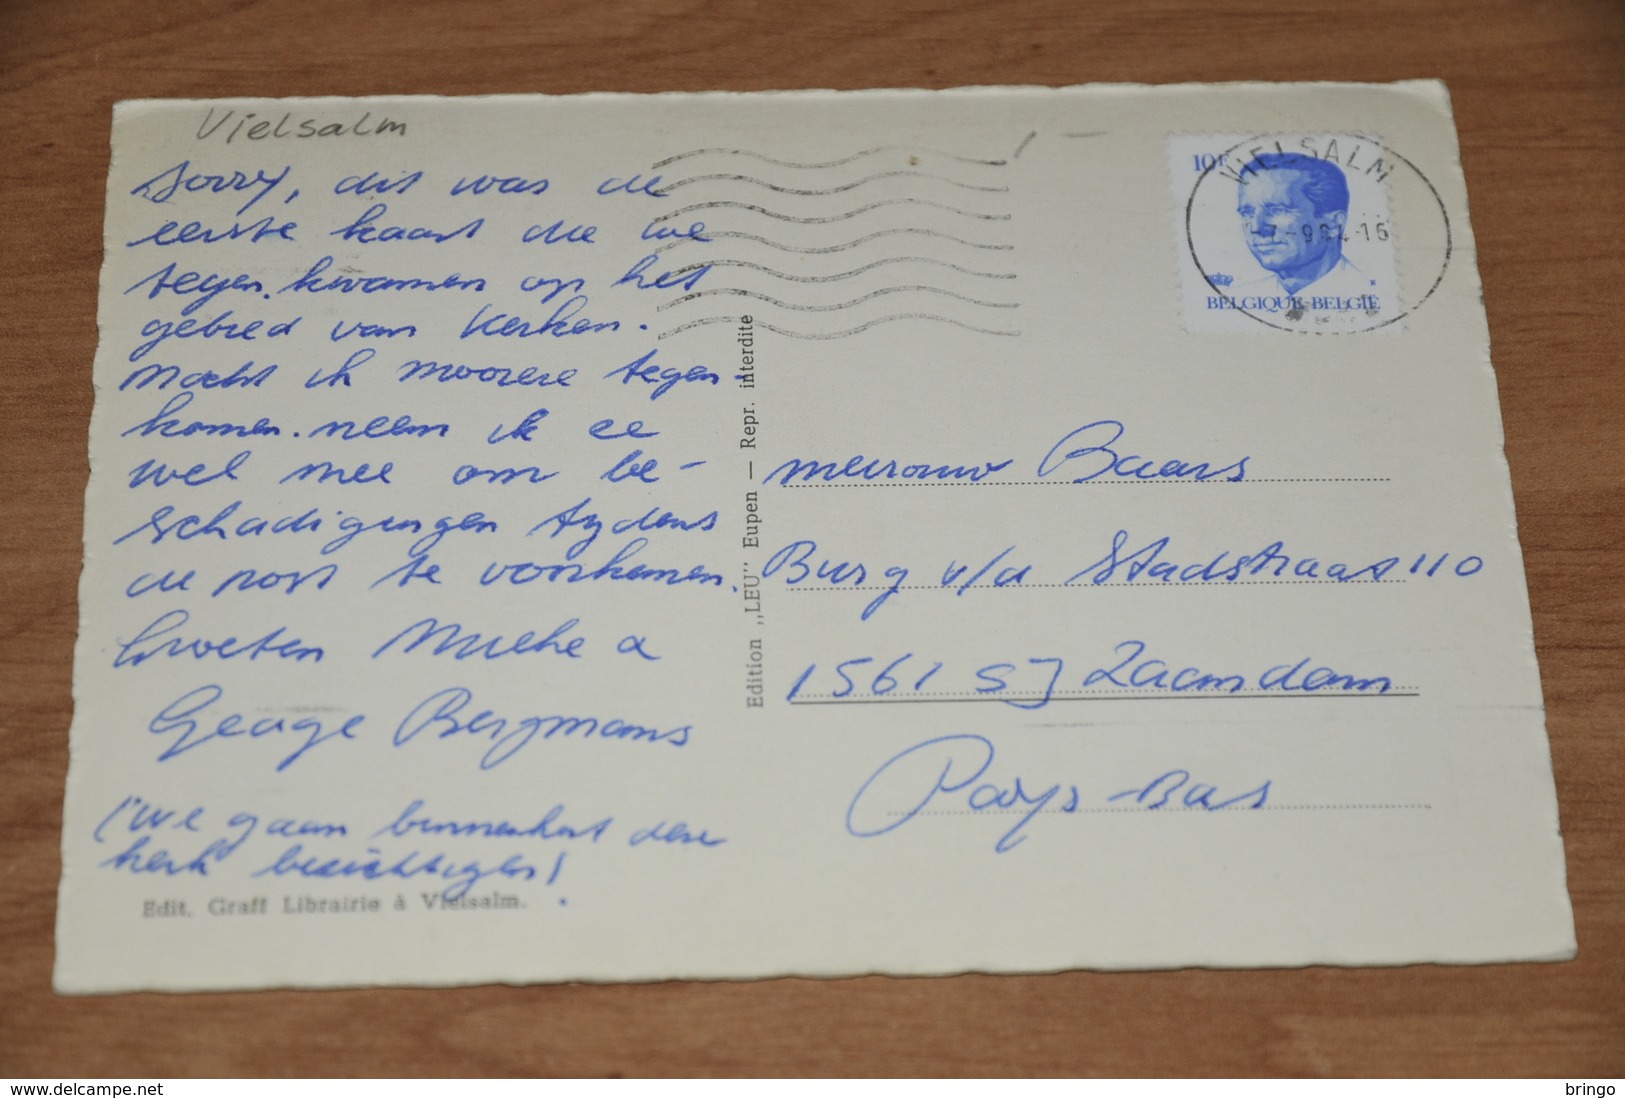 Vielsalm
Sorry, dit was de
eerste kaart die we
tegen kwamen op het
gebied van kerken.
Mocht ik mooiere tegen-
komen. neem ik ze
wel mee om be-
schadigingen tijdens
de post te voorkomen.
Groeten Mieke &
George Bergmans
(We gaan binnenkort deze
kerk bezichtigen!
Edit. Graff Librairie à Vielsalm.
Edition „LEU" Eupen — Repr. interdite
10F
VIELSALM
BELGIQUE-BELGIË
mevrouw Baars
Burg v/d Stadstraat 110
1561 SJ Zaandam
Pays-Bas
delcampe.net
bringo